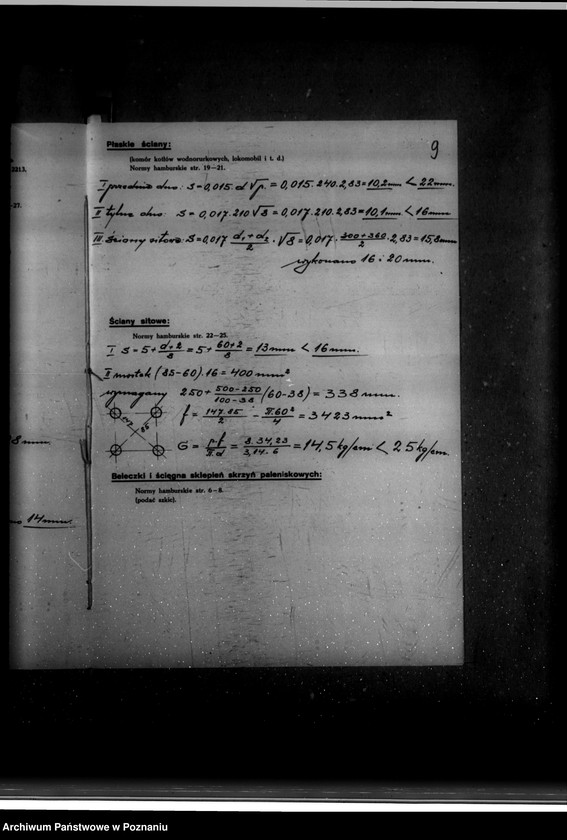 9
Płaskie ściany:
(komór kotłów wodnorurkowych, lokomobil i t. d.)
Normy hamburskie str. 19—21.
I przednie dno: s = 0,015 . d √p = 0,015 . 240 . 2,83 = 10,2 mm < 22 mm.
II tylne dno: s = 0,017 . 210 √8 = 0,017 . 210 . 2,83 = 10,1 mm < 16 mm
III ściany sitowe s = 0,017 (d₁ + d₂)/2 . √8 = 0,017 . (300 + 360)/2 . 2,83 = 15,8 mm
wykonano 16 i 20 mm.
Ściany sitowe:
Normy hamburskie str. 22—25.
I s = 5 + (d + 2)/8 = 5 + (60 + 2)/8 = 13 mm < 16 mm.
II mostek (85 - 60) . 16 = 400 mm²
wymagany 250 + (500 - 250)/(100 - 38) (60 - 38) = 338 mm.
85
f = (147 . 85)/2 - (π . 60²)/4 = 3423 mm²
G = (p . f)/(π . d) = (8 . 34,23)/(3,14 . 6) = 14,5 kg/cm < 25 kg/cm.
Beleczki i ścięgna sklepień skrzyń paleniskowych:
Normy hamburskie str. 6—8.
(podać szkic).
8 mm.
14 mm.
2213,
27.
Archiwum Państwowe w Poznaniu